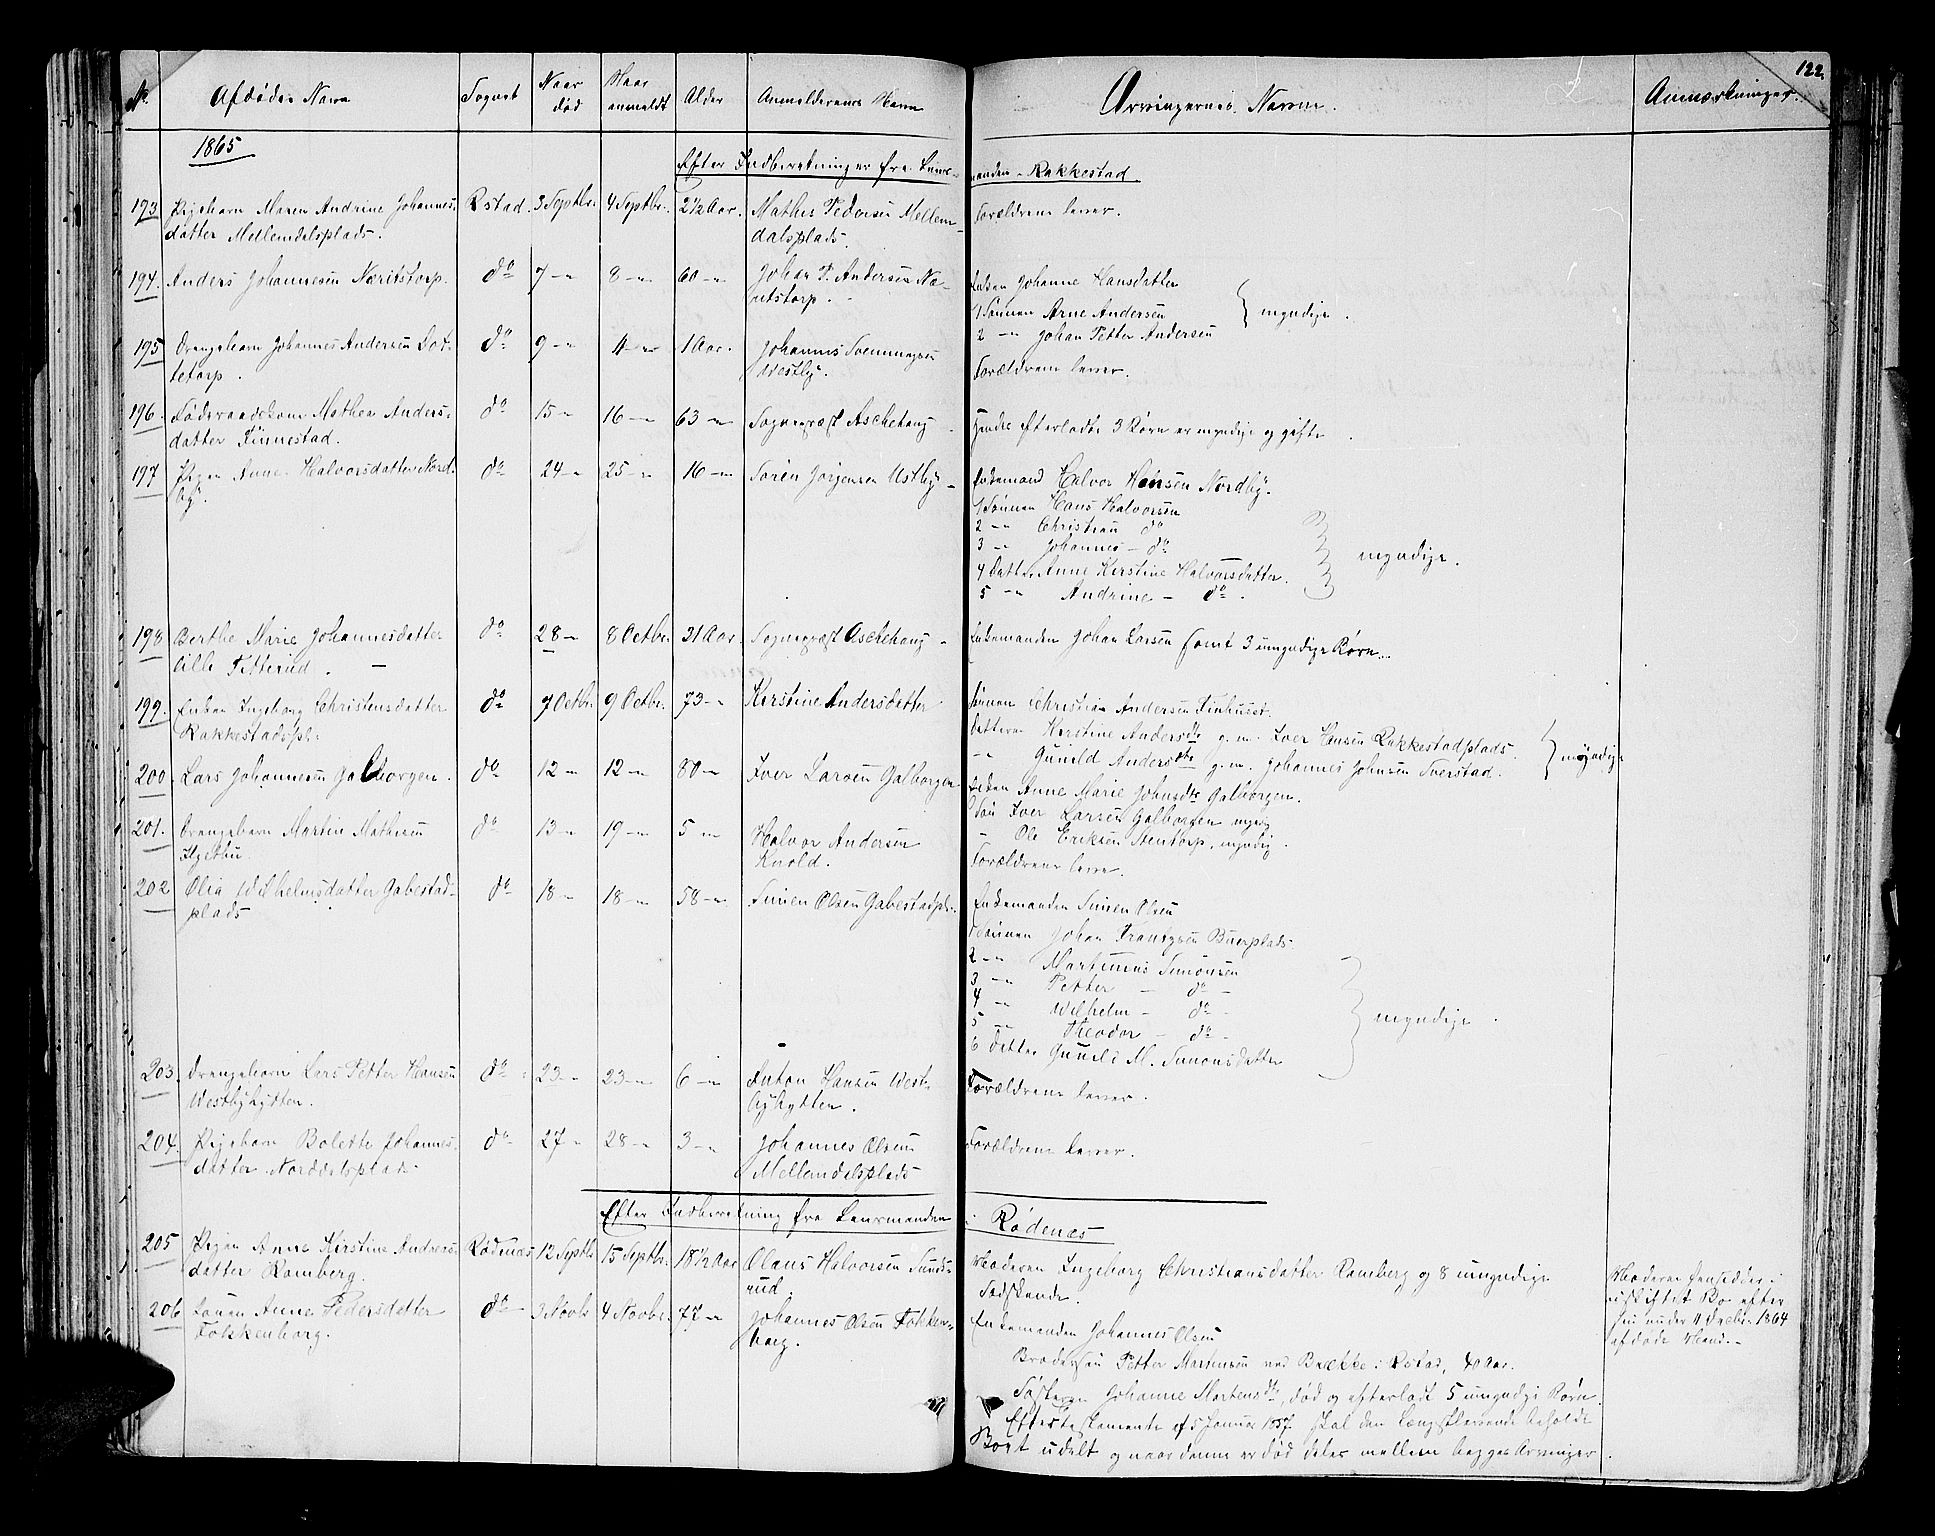 122.
No. Afdødes Navn Sognet Naar død Naar anmeldt Alder Anmelderens Navn Arvingernes Navne. Anmærkninger.
1865
Efter Indberetninger fra Lensmanden Rakkestad
193 Pigebarn Maren Andrine Johannes- Rstad. 3 Septbr. 4 Septbr. 2½ Aar. Mathis Pedersen Mellem- Forældrene lever.
datter Mellemdalsplads. dalsplads.
194. Anders Johannesen Næritstorp. do 7 -"- 8 -"- 60 -"- Johan P. Andersen Næ- Enken Johanne Hansdatter
ritstorp. 1 Sønnen Arne Andersen myndige.
2 -"- Johan Petter Andersen
195 Drengebarn Johannes Andersen Dot- do 9 -"- 11 -"- 1 Aar. Johannes Svenningsen Forældrene lever.
tetorp. Westby.
196. Føderaadskone Mathea Anders- do 15 -"- 16 -"- 63 -"- Sognepræst Aschehoug Hendes Efterladte 3 Børn er myndige og gifte.
datter Finnestad.
197 Pigen Anne Halvorsdatter Nord- do 24 -"- 25 -"- 16 -"- Søren Jørgensen Ustby Enkemand Halvor Hansen Nordby.
by. 1 Sønnen Hans Halvorsen
2 -"- Christian do
3 -"- Johannes - do myndige.
4 Datter Anne Kirstine Halvorsdatter.
5 -"- Andrine - do.
198 Berthe Marie Johannesdatter do 28 -"- 8 Octbr. 31 Aar. Sognepræst Aschehoug Enkemanden Johan Larsen samt 3 umyndige Børn.
lille Fitterud.
199. Enken Ingeborg Christensdatter do 7 Octbr. 9 Octbr. 73 -"- Kirstine Andersdatter Sønnen Christian Andersen Finhuset.
Rakkestadspl: Datteren Kirstine Andersdtr g. m. Iver Hansen Rakkestadplads. myndige
-"- Gunild Andersdtr g. m. Johannes Johnsen Sverstad.
200 Lars Johannesen Galborgen. do 12 -"- 12 -"- 80 -"- Iver Larsen Galborgen Enken Anne Marie Johnsdtr Galborgen.
Søn Iver Larsen Galborgen myndig
- Ole Eriksen Stentorp, myndig.
201. Drengebarn Martin Mathisen do 13 -"- 19 -"- 5 -"- Halvor Andersen Forældrene lever.
Knold.
202 Olia Wilhelmsdatter Gabestad- do 18 -"- 18 -"- 58 -"- Simen Olsen Gabestadpl: Enkemanden Simen Olsen
plads 1 Sønnen Johan Frantzsen Buerplads.
2 -"- Martinus Simonsen
3 -"- Petter - do -
4 -"- Wilhelm - do - myndige.
5 -"- Theodor - do -
6 Datter Gunild M. Simonsdatter
203. Drengebarn Lars Petter Hansen do 23 -"- 23 -"- 6 -"- Anton Hansen West- Forældrene lever.
Westbyhytten. byhytten.
204. Pigebarn Bolette Johannes- do 27 -"- 28 -"- 3 -"- Johannes Olsen Forældrene lever.
datter Norddalsplads Mellemdalsplads
Efter Indberetning fra Lensmanden i Rødenæs
205 Pigen Anne Kirstine Andreas- Rødenæs 12 Septbr. 15 Septbr. 18½ Aar Olaus Halvorsen Sunds- Moderen Ingeborg Christiansdatter Ramberg og 8 umyndige Moderen hensidder i
datter Ramberg. rud. Sødskende. uskiftet Bo efter
206 Konen Anne Pedersdatter do 3 Novbr 4 Novbr. 77 -"- Johannes Olsen Folken- Enkemanden Johannes Olsen sin under 11 1864
Folkenborg. borg. afdøde Mand.
Brodersøn Petter Martensen ved Brække i Rstad, 40 Aar.
Søsteren Johanne Martensdtr, død og efterladt 5 umyndige Børn.
Eftertestamente af 5 Januar 1857 skal den længstlevende beholde
Boet udelt og naar denne er død deles mellem begges Arvinger.